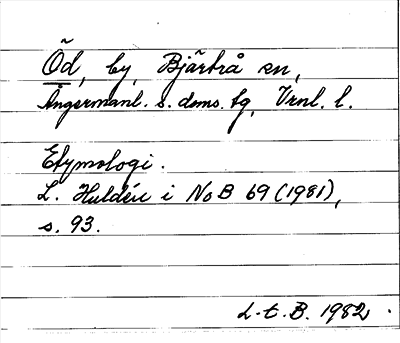 Öd, by, Bjärtrå sn,
Ångermanl. s. doms. tg, Vrnl. l.
Etymologi.
L. Huldén i NoB 69 (1981),
s. 93.
L-t. B. 1982.